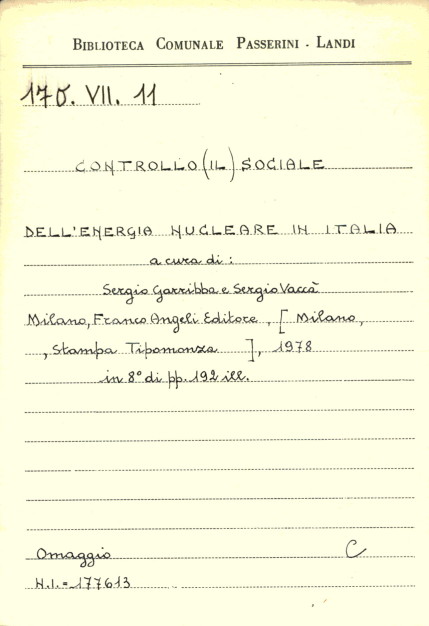 BIBLIOTECA COMUNALE PASSERINI - LANDI
170. VII. 11
CONTROLLO (IL) SOCIALE
DELL'ENERGIA NUCLEARE IN ITALIA
a cura di :
Sergio Garribba e Sergio Vaccà
Milano, Franco Angeli Editore, [ Milano,
, Stampa Tipomonza ], 1978
in 8° di pp. 192 ill.
Omaggio C
N.I. = 177613